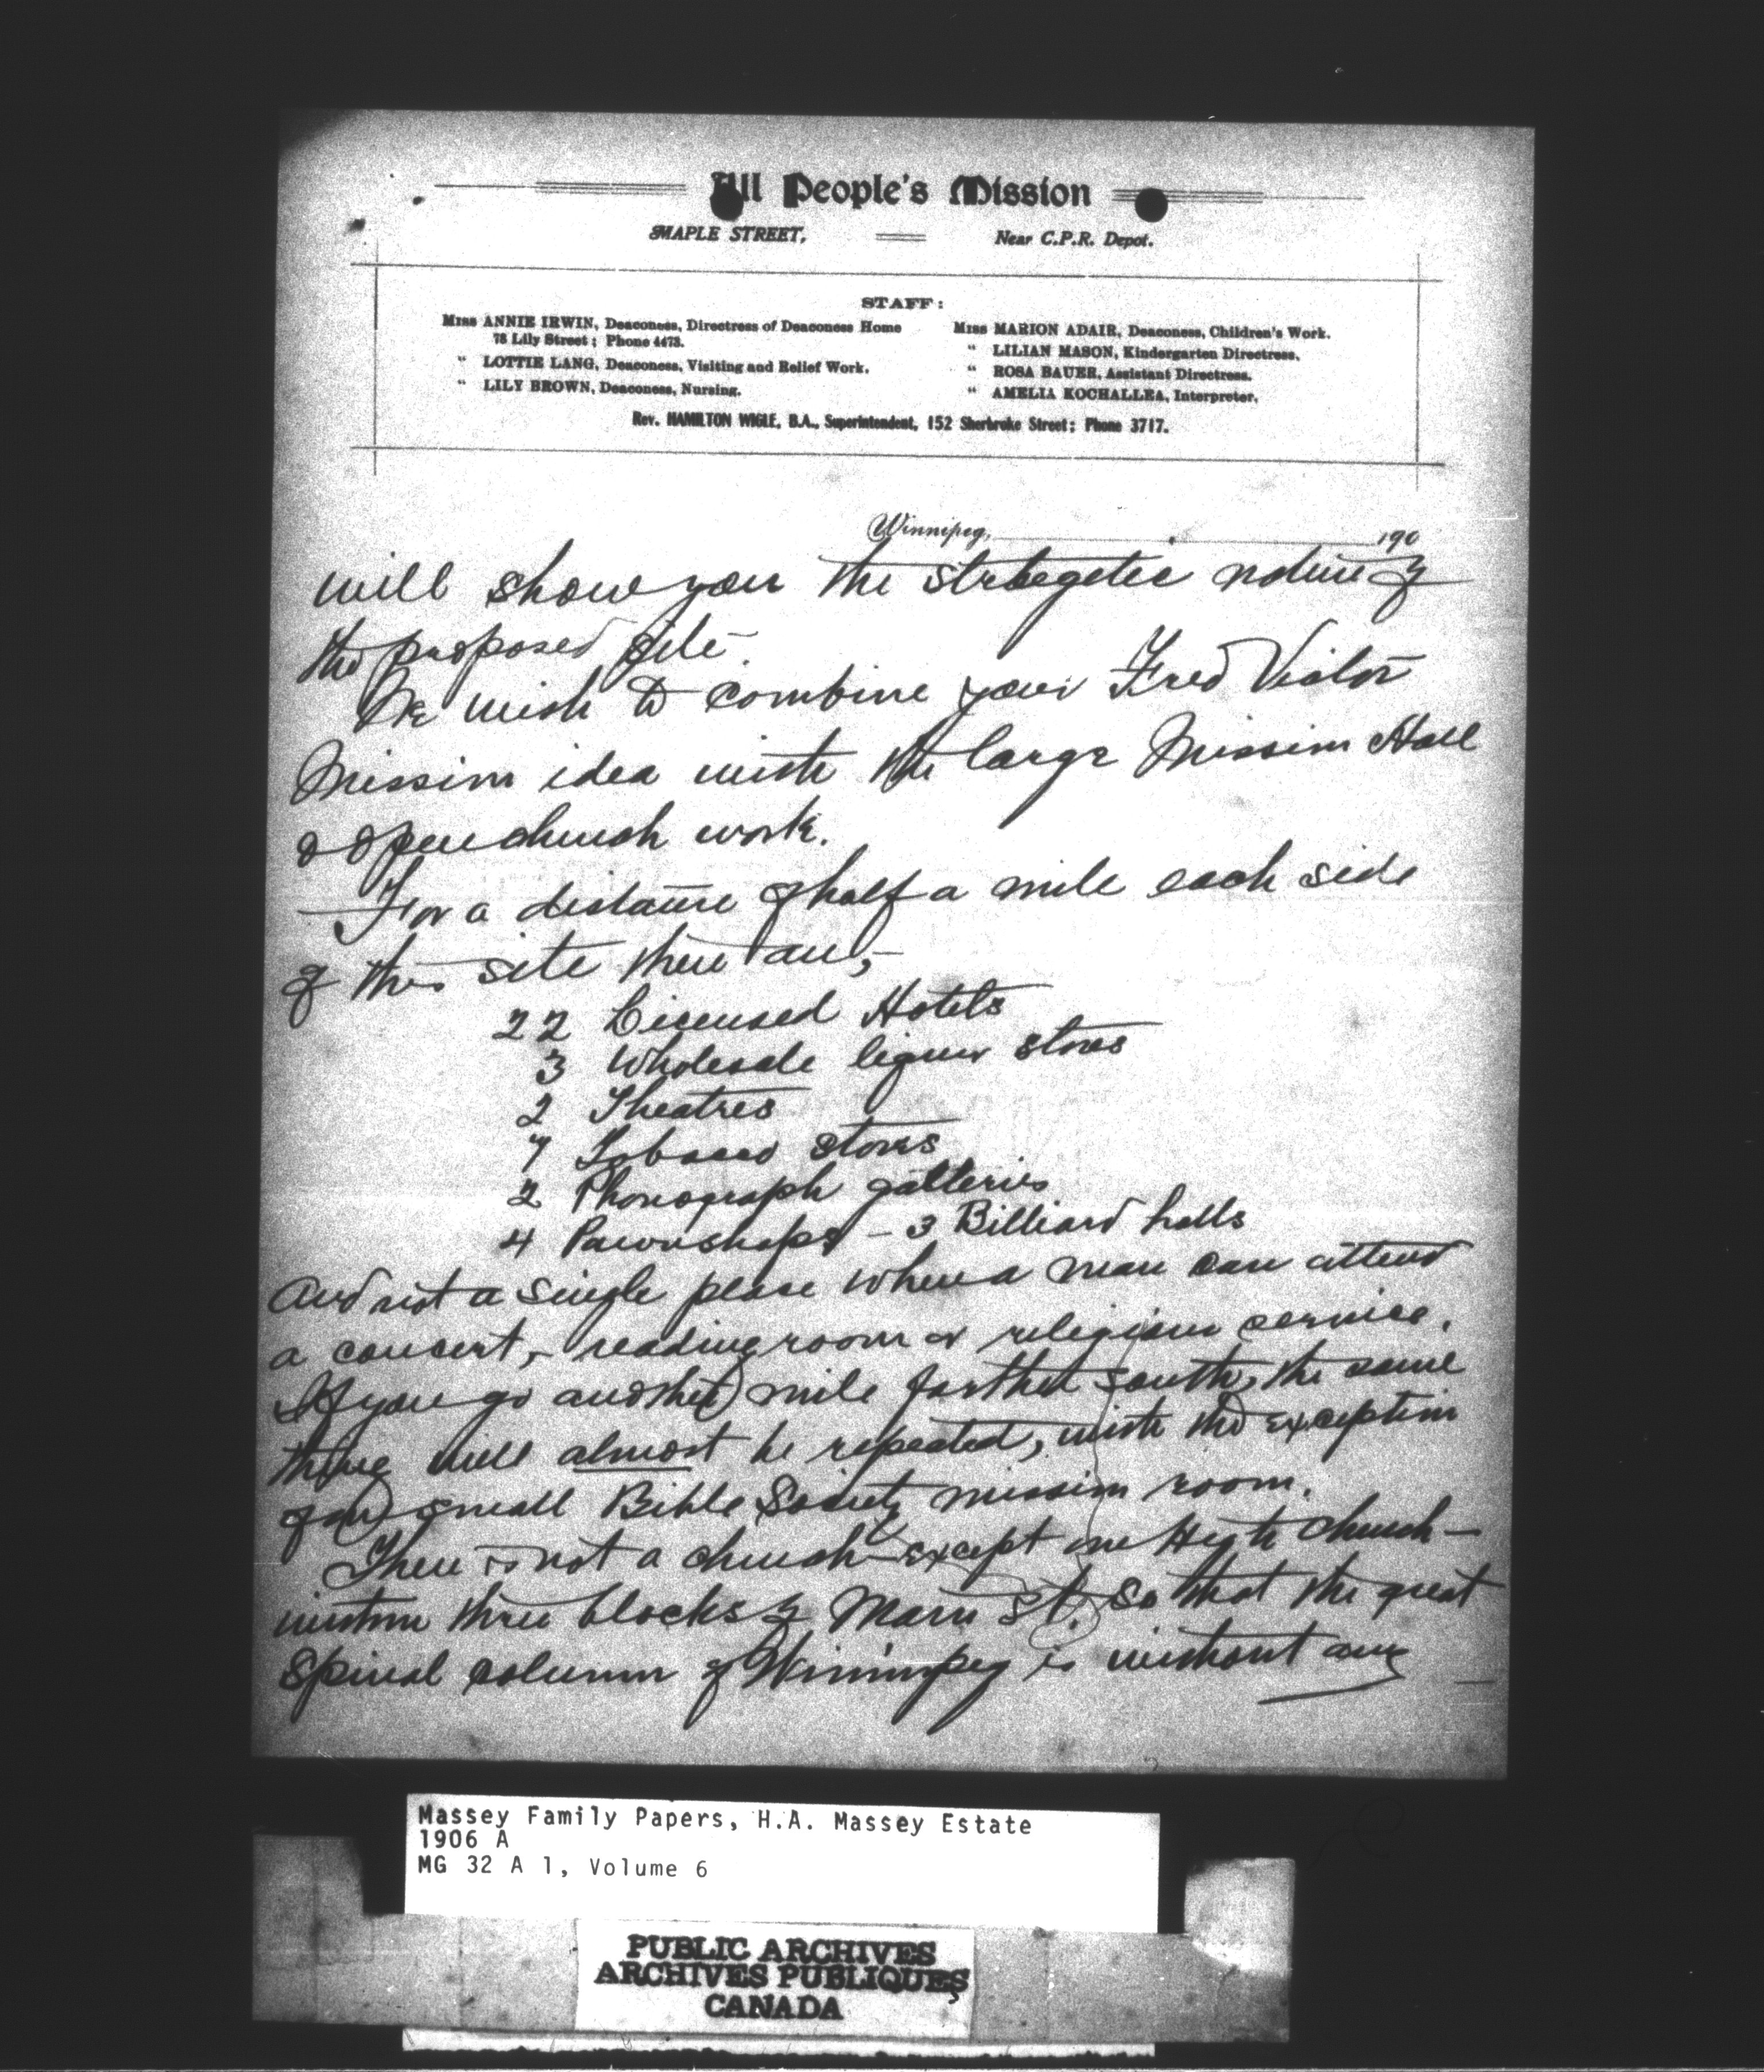 All People's Mission
MAPLE STREET, Near C.P.R. Depot.
STAFF:
Miss ANNIE IRWIN, Deaconess, Directress of Deaconess Home
78 Lily Street; Phone 4473.
" LOTTIE LANG, Deaconess, Visiting and Relief Work.
" LILY BROWN, Deaconess, Nursing.
Miss MARION ADAIR, Deaconess, Children's Work.
" LILIAN MASON, Kindergarten Directress.
" ROSA BAUER, Assistant Directress.
" AMELIA KOCHALLEA, Interpreter.
Rev. HAMILTON WIGLE, B.A., Superintendent, 152 Sherbroke Street; Phone 3717.
Winnipeg, 190
will show you the strategetic nature of
the proposed site.
We wish to combine your Fred Victor
Mission idea with the large Mission Hall
& open church work.
For a distance of half a mile each side
of this site there are,-
22 Licensed Hotels
3 Wholesale liquor stores
2 Theatres
7 Tobacco stores
2 Phonograph galleries
4 Pawnshops - 3 Billiard halls
and not a single place where a man can attend
a concert, reading room or religious service.
If you go another mile farther south, the same
thing will almost be repeated, with the exception
of a small Bible Society mission room.
There is not a church - except one High Church -
within three blocks of Main St. So that the great
spinal column of Winnipeg is without any
Massey Family Papers, H.A. Massey Estate
1906 A
MG 32 A 1, Volume 6
PUBLIC ARCHIVES
ARCHIVES PUBLIQUES
CANADA